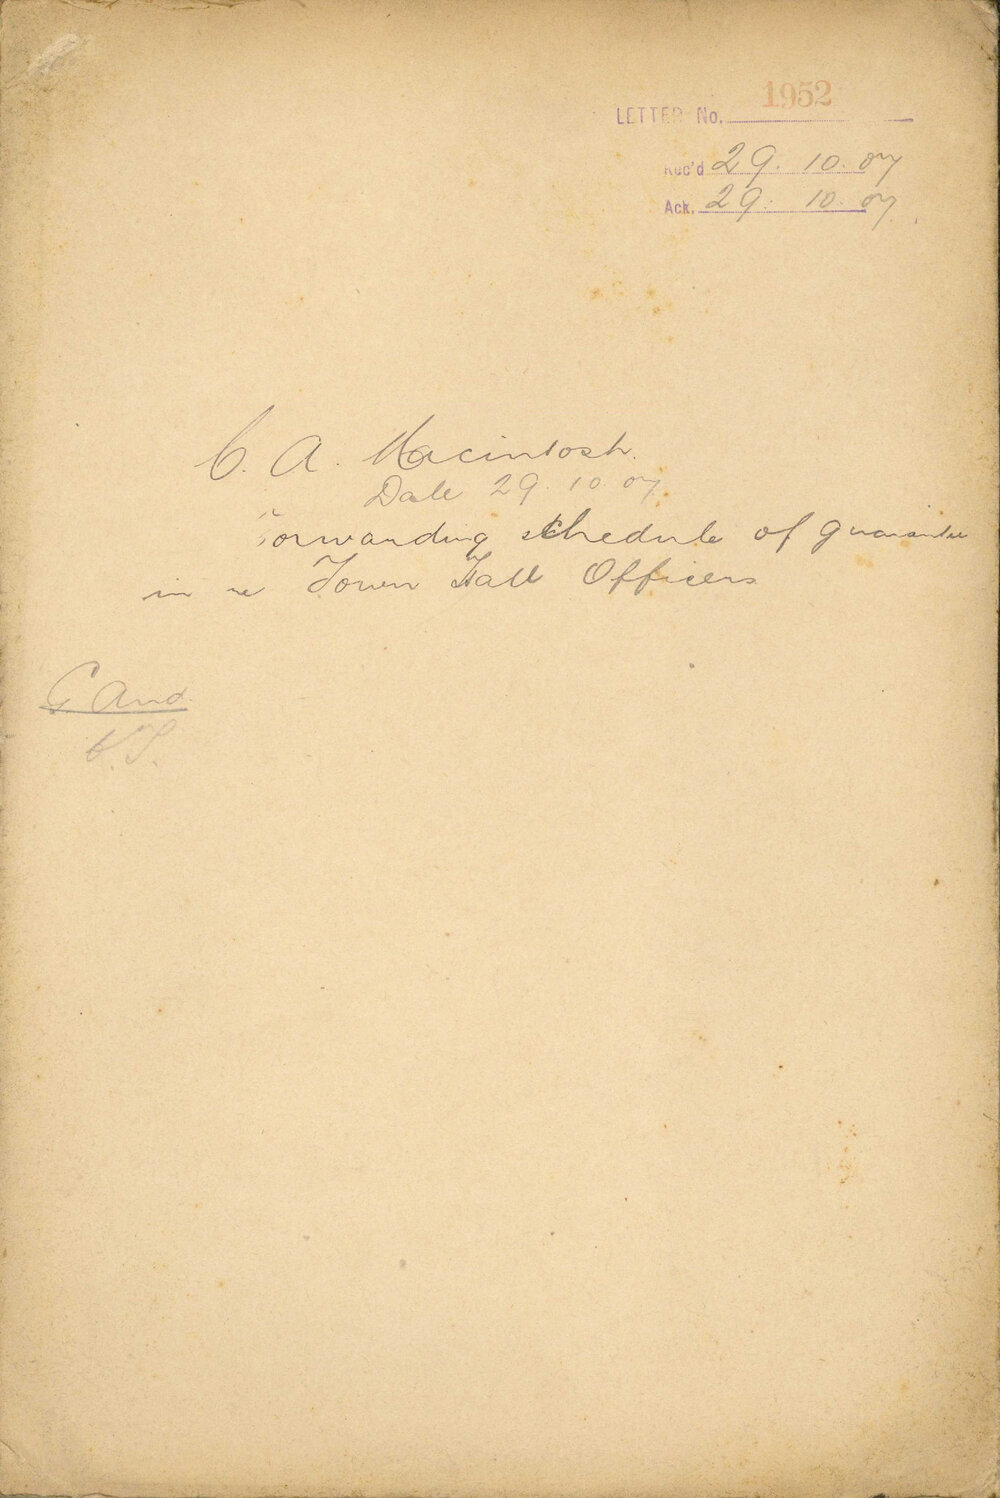 LETTER No. 1952
Rec'd 29. 10. 07
Ack. 29. 10. 07
C. A. Macintosh.
Date 29. 10. 07.
Forwarding schedule of guarantee
in re Town Hall Officers
G Aud.